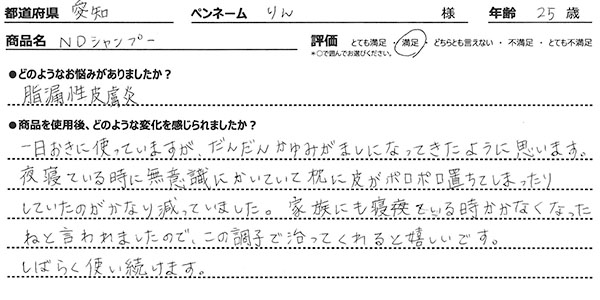 都道府県 愛知 ペンネーム りん 様 年齢 25 歳
商品名 NDシャンプー 評価 とても満足 ・ 満足 ・ どちらとも言えない ・ 不満足 ・ とても不満足
*○で囲んでお選びください。
●どのようなお悩みがありましたか？
脂漏性皮膚炎
●商品を使用後、どのような変化を感じられましたか？
一日おきに使っていますが、だんだんかゆみがましになってきたように思います。
夜寝ている時に無意識にかいていて枕に皮がボロボロ置ちてしまったり
していたのがかなり減っていました。家族にも寝ている時かかなくなった
ねと言われましたので、この調子で治ってくれると嬉しいです。
しばらく使い続けます。